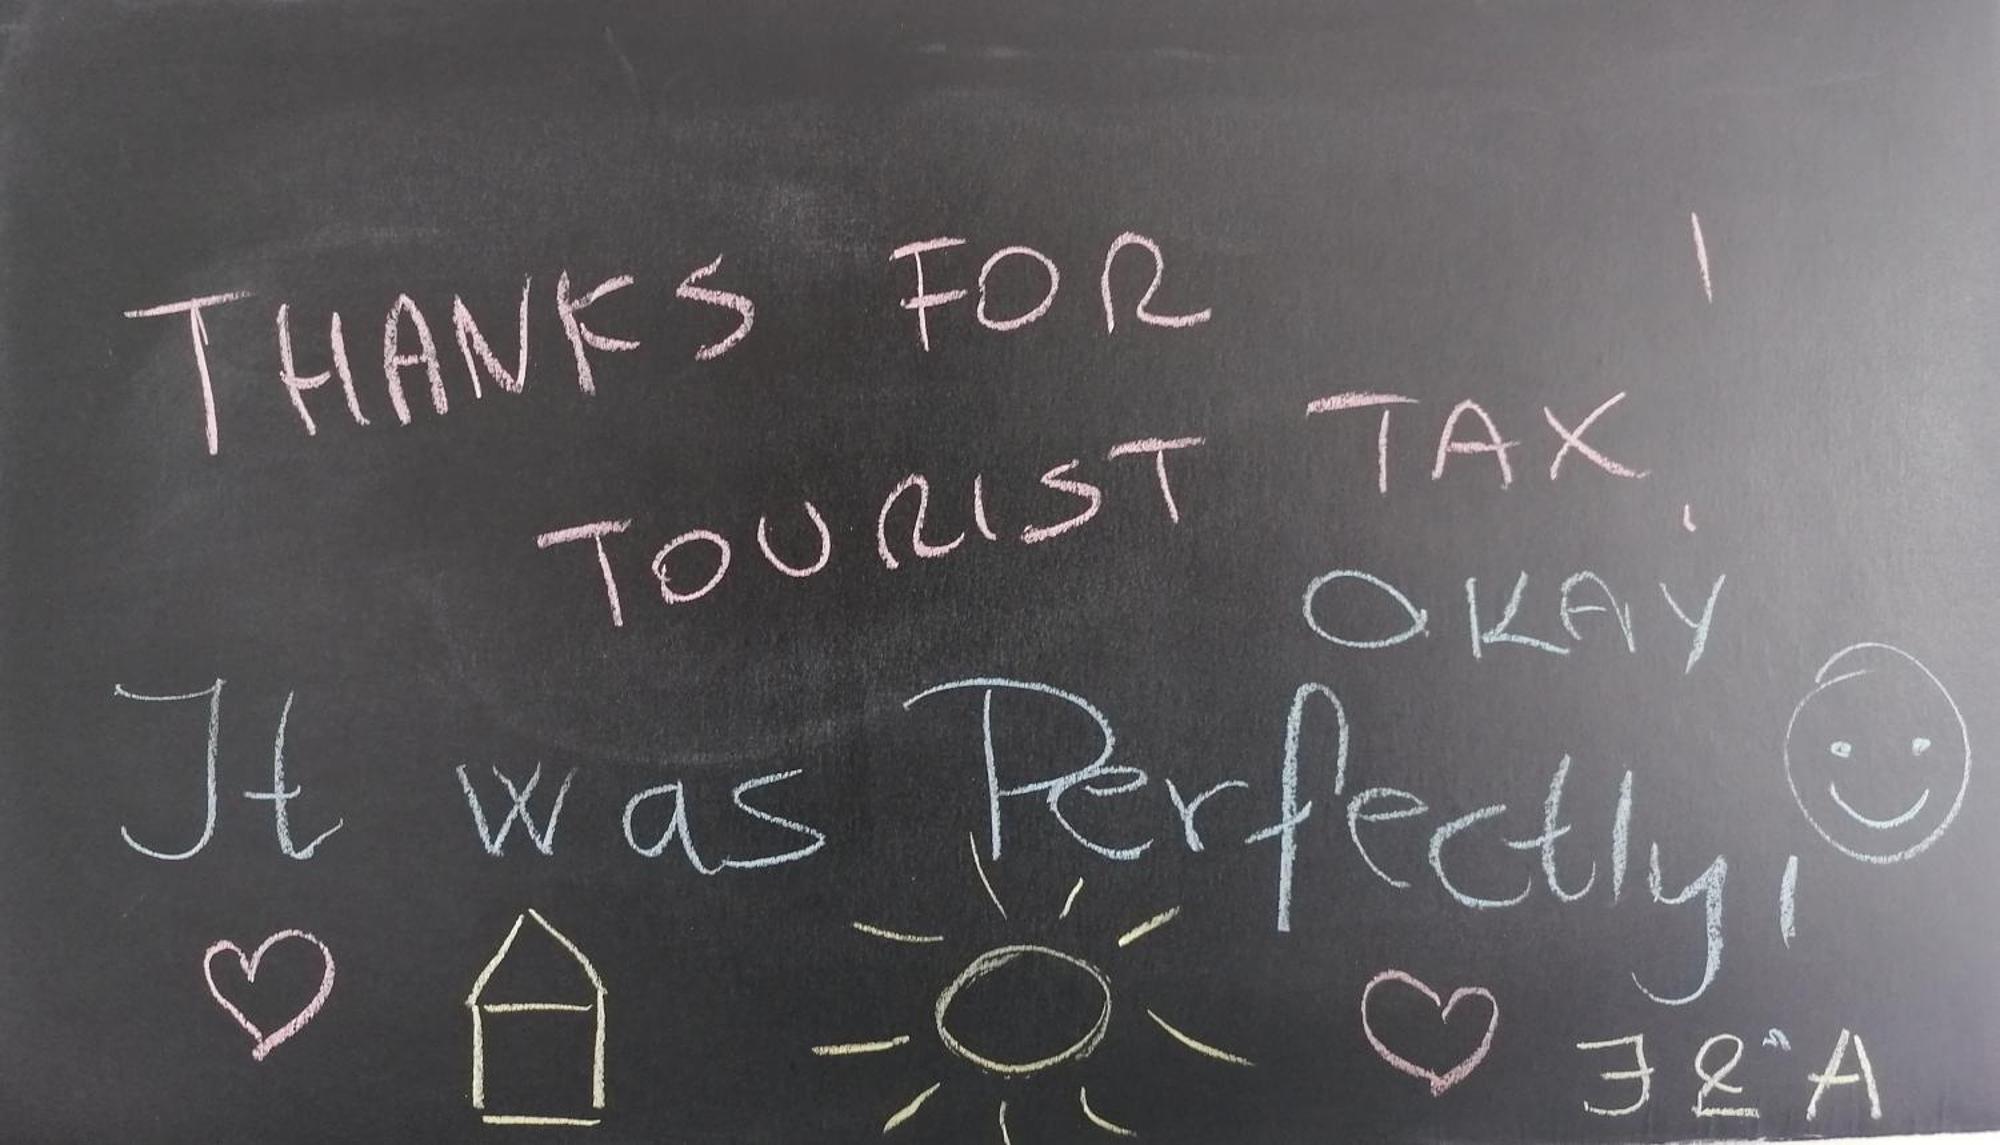 THANKS FOR
TOURIST TAX!
OKAY
It was Perfectly,
J & A